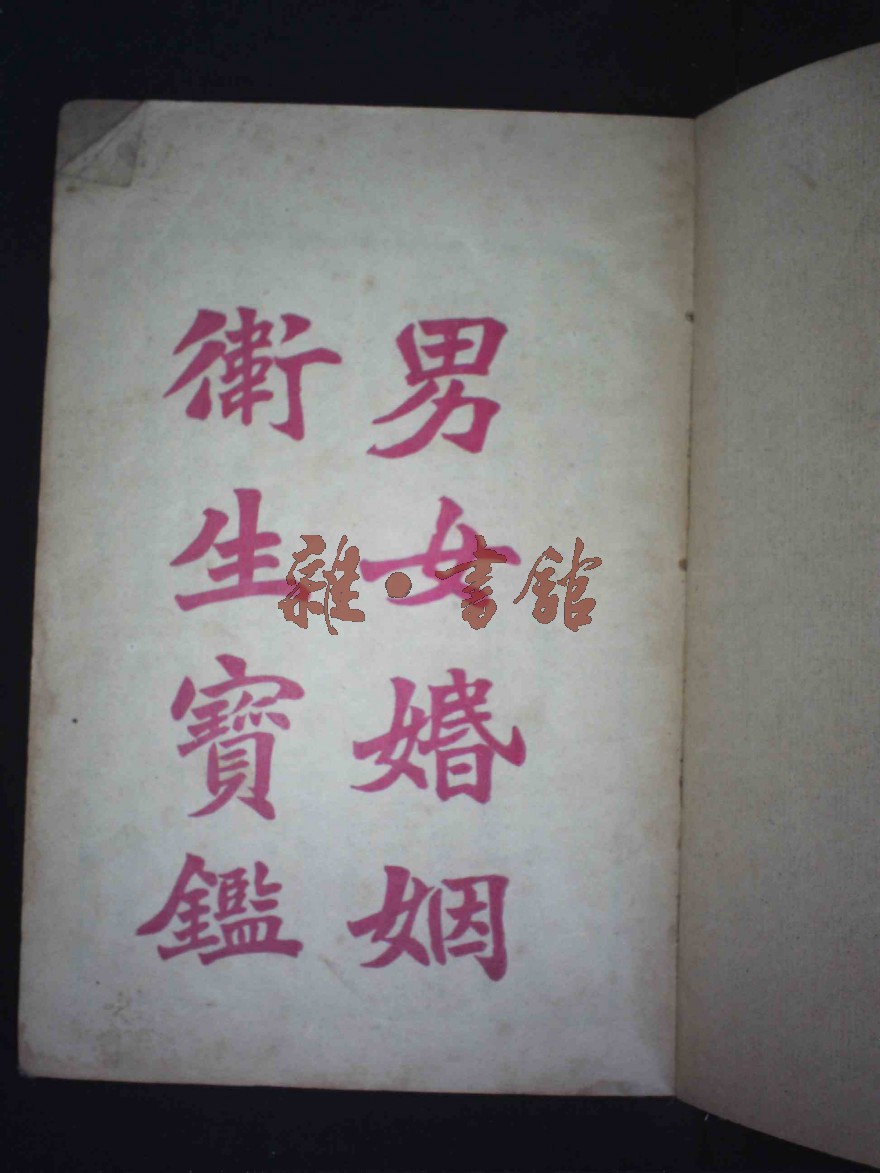 男女婚姻
衛生寶鑑
雜·書館